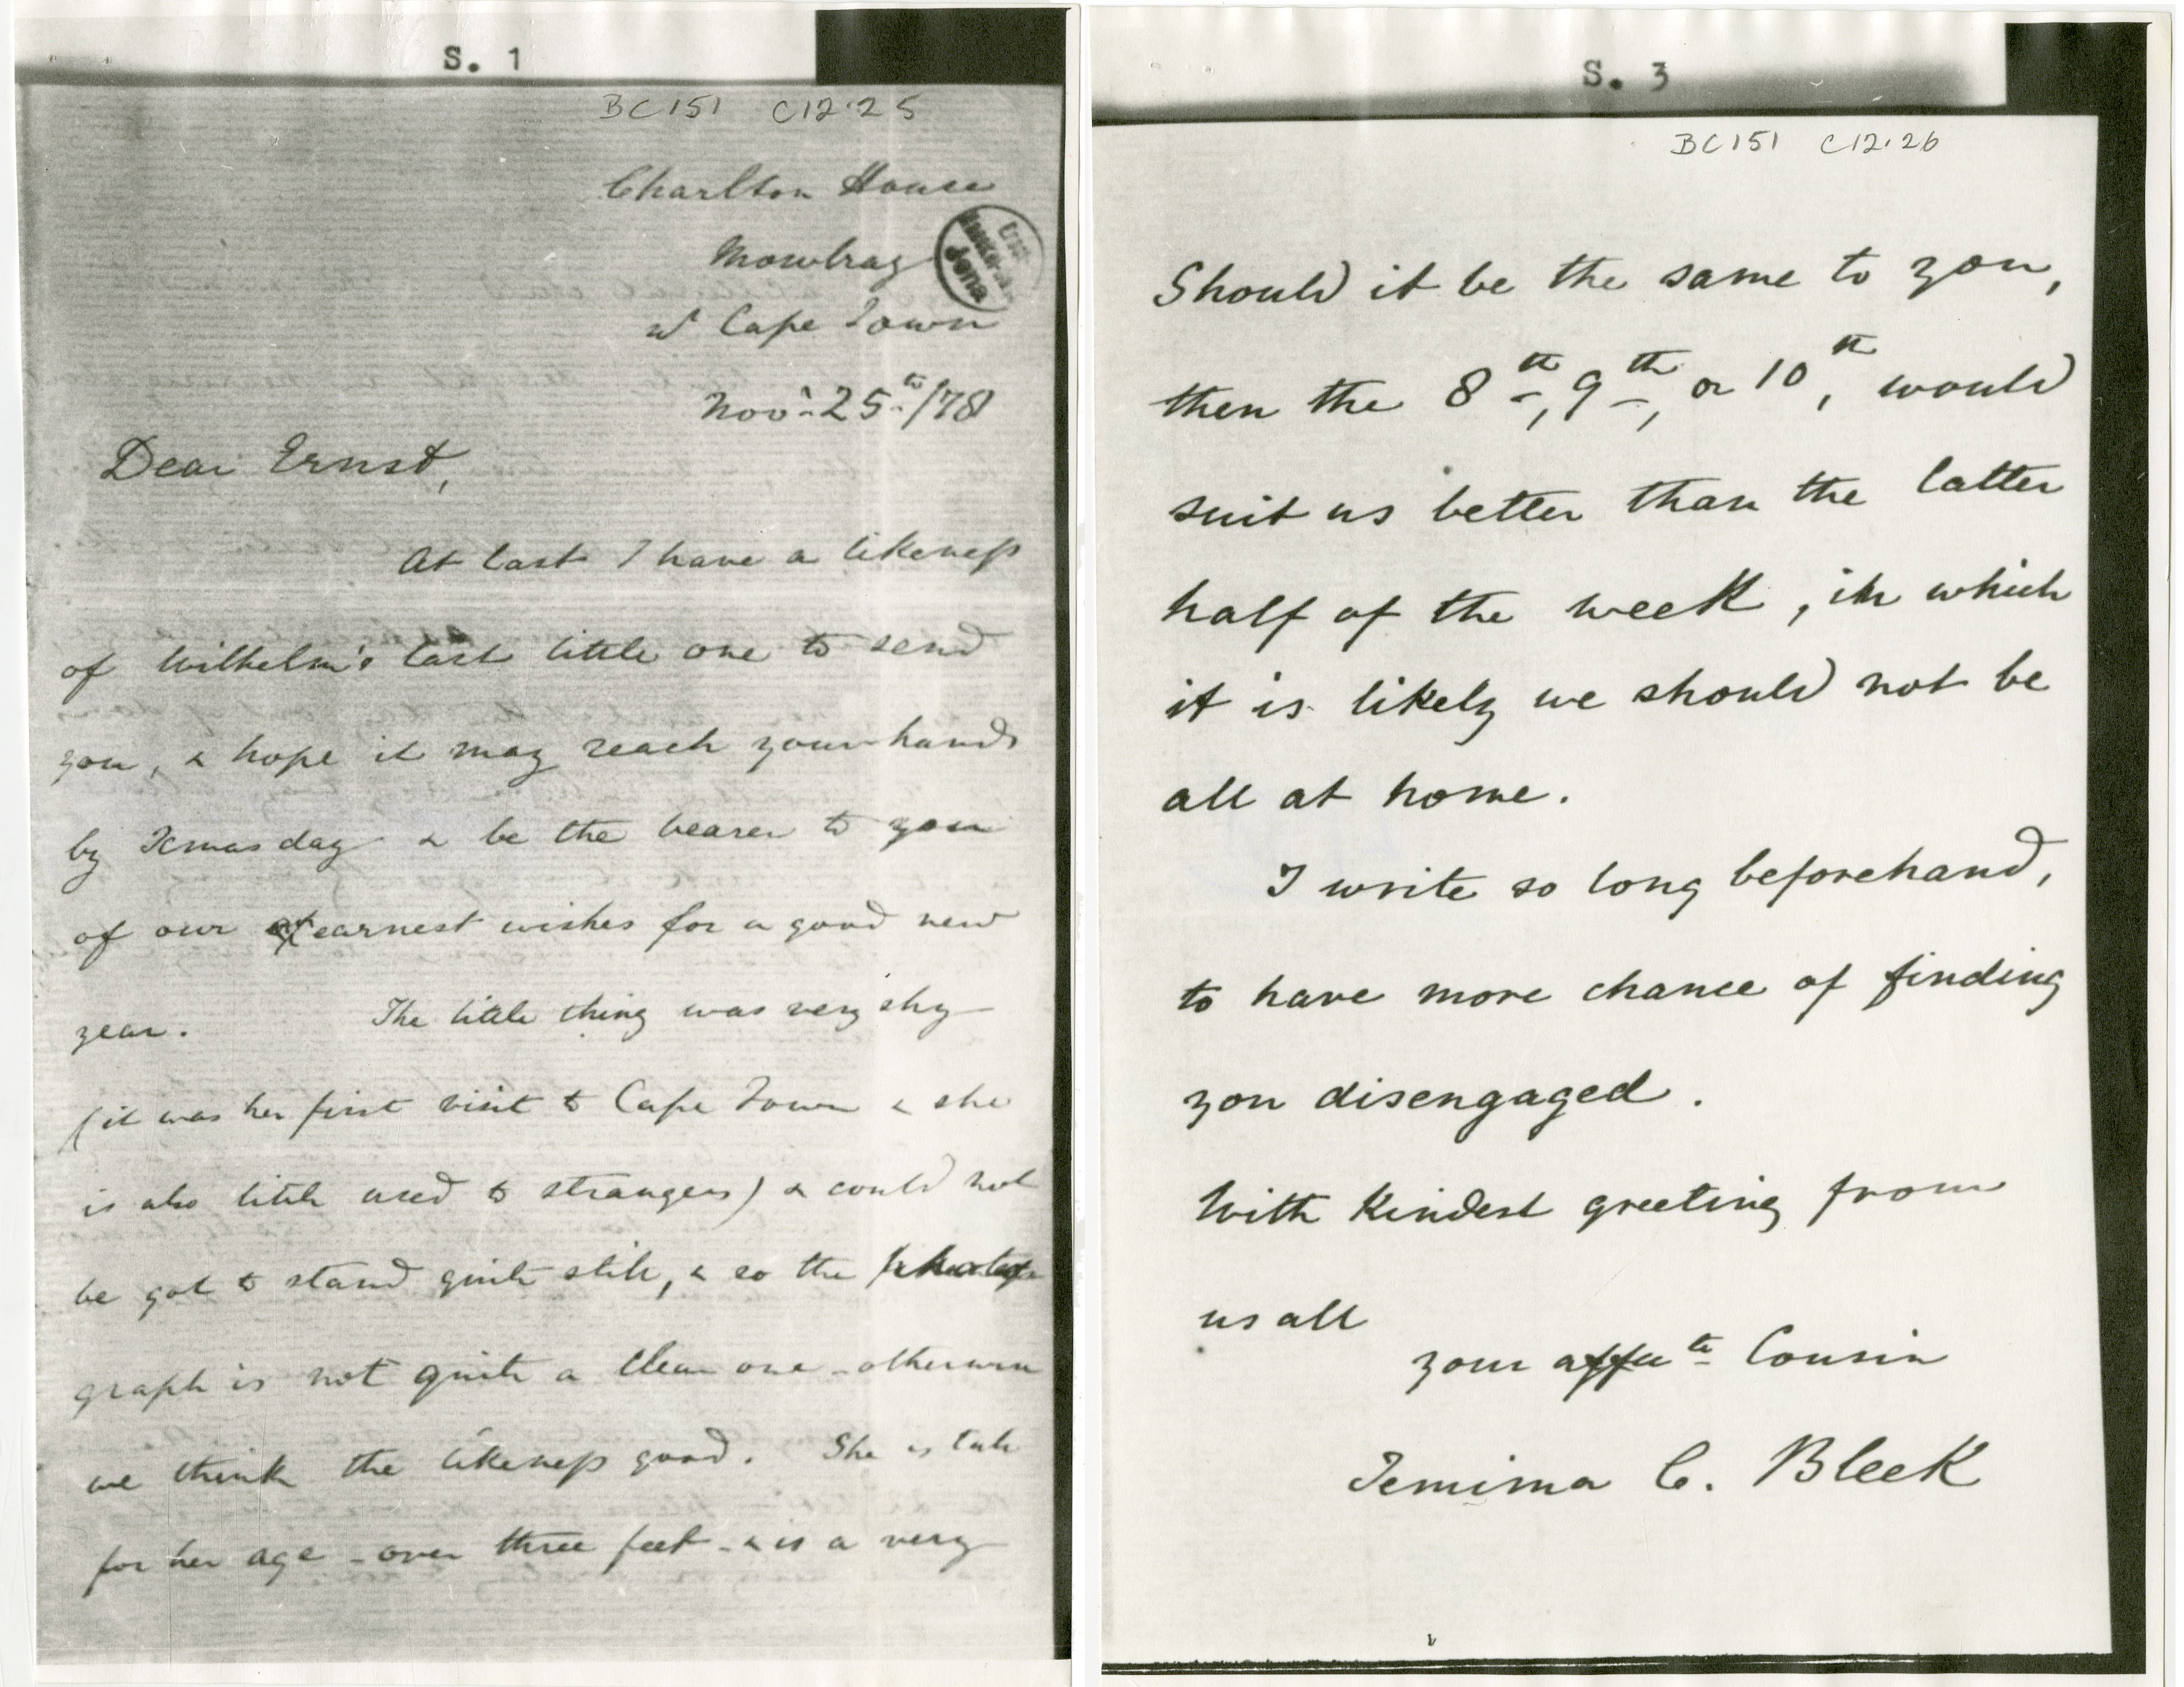 S. 1
BC151 C12.25
Charlton House
Mowbray
Jena
Cape Town
Novr. 25th/78
Dear Ernst,
At last I have a likeness
of Wilhelm's last little one to send
you, & hope it may reach your hands
by Xmas day & be the bearer to you
of our earnest wishes for a good new
year. The little thing was very shy
(it was her first visit to Cape Town & she
is also little used to strangers) & could not
be got to stand quite still, & so the photo-
graph is not quite a clear one - otherwise
we think the likeness good. She is tall
for her age - over three feet - & is a very
S. 3
BC151 C12.26
Should it be the same to you,
then the 8th, 9th, or 10th, would
suit us better than the latter
half of the week, in which
it is likely we should not be
all at home.
I write so long beforehand,
to have more chance of finding
you disengaged.
With kindest greeting from
us all
your affte Cousin
Jemima C. Bleek